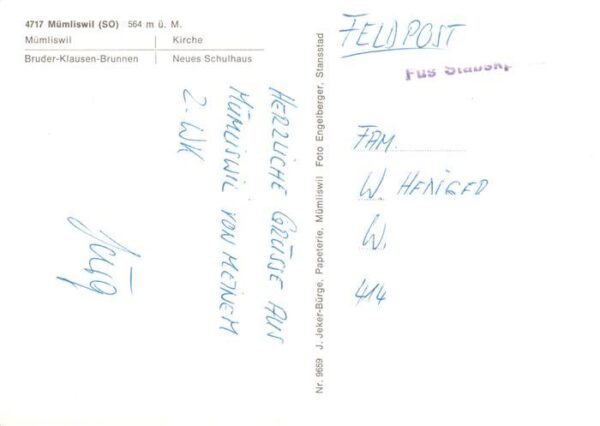 4717 Mümliswil (SO) 564 m ü. M.
Mümliswil Kirche
Bruder-Klausen-Brunnen Neues Schulhaus
HERZLICHE GRÜSSE AUS
MÜMLISWIL VON MEINEM
2. WK
Jürg
Nr. 9659 J. Jeker-Bürge, Papeterie, Mümliswil Foto Engelberger, Stansstad
FELDPOST
Füs Stabskp
FAM.
W. HENIGER
W.
414